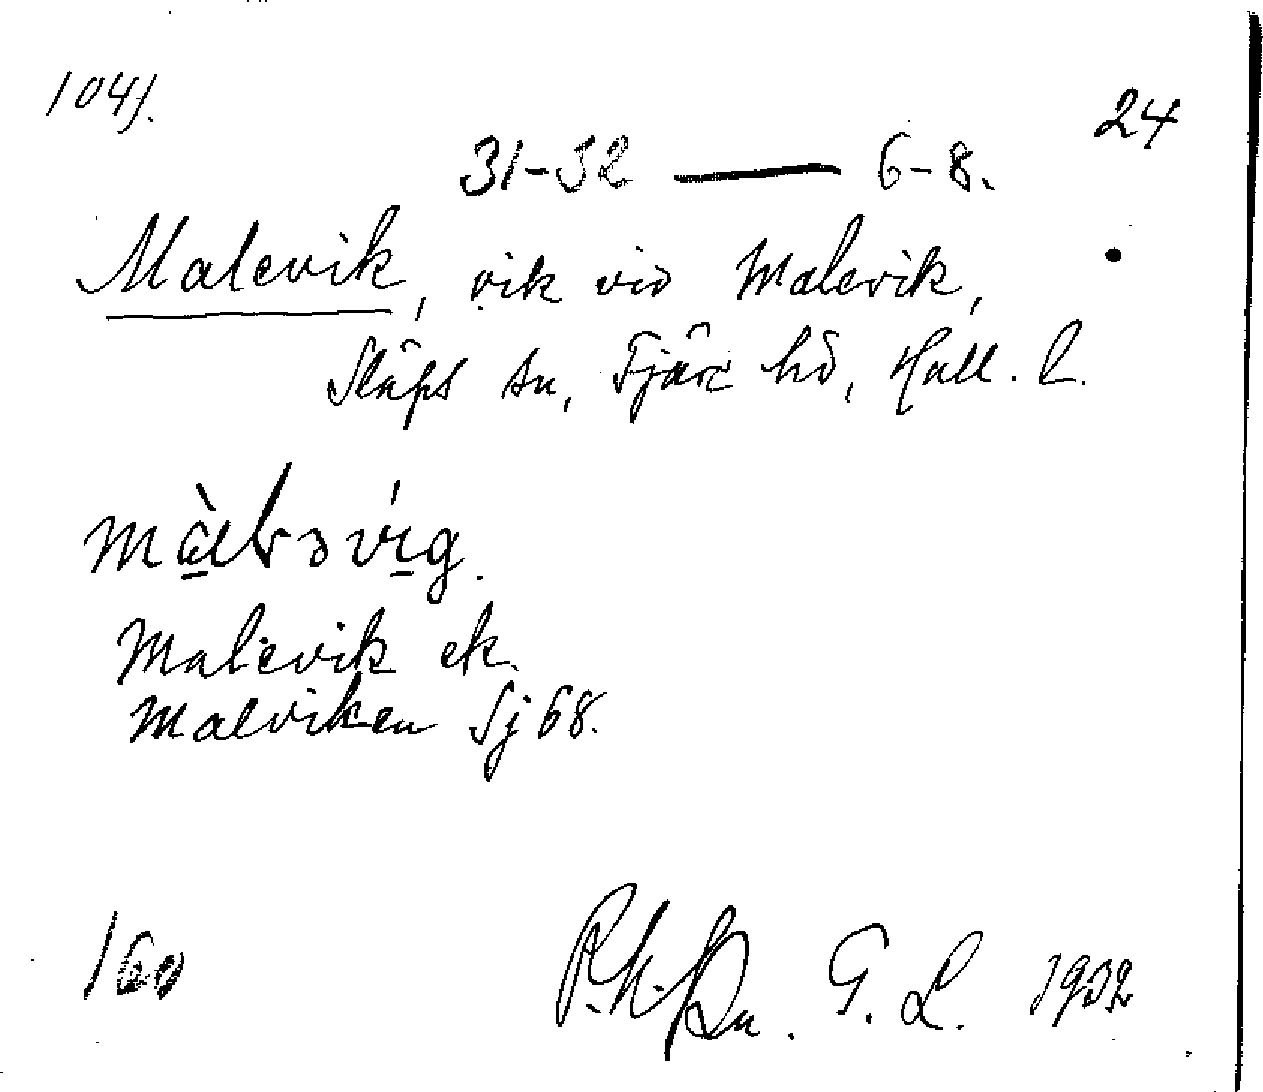 104).
24
31-32 — 6-8.
Malevik, vik vid Malevik,
Släps sn, Fjäre hd, Hall. l.
Malevik ek.
Malviken Sj 68.
160
G. L. 1932